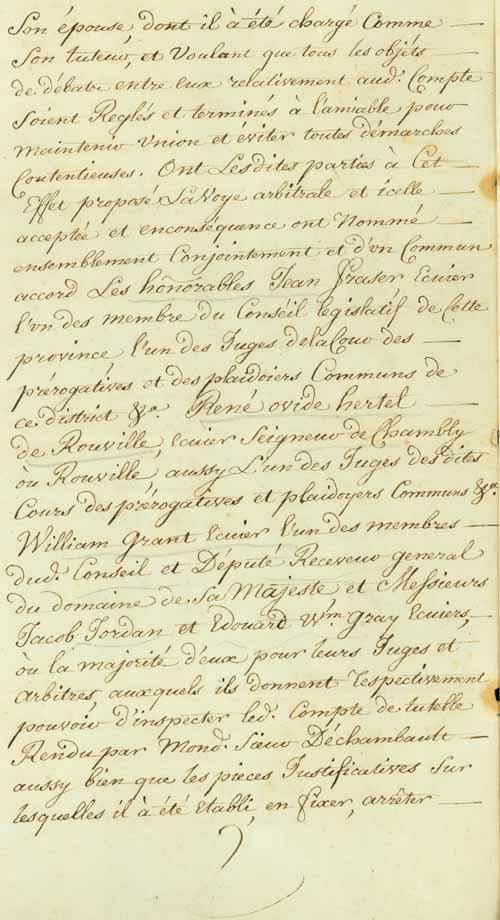 Son épouse dont il à été chargé Comme
Son tuteur, et Voulant que tous les objéts
de débats entre eux relativement aud. Compte
Soient Reglés et terminés à l'amiable pour
maintenir Union et eviter toutes démarches
Contentieuses. Ont Lesdites parties à Cet
Effet proposé La Voye arbitrale et icelle
acceptée et enconséquence ont Nommé
ensemblement Conjointement et d'un Commun
accord Les honorables Jean Fraser Ecuier
l'un des membre du Conséil legislatif de Cette
province l'un des Juges dela Cour des
prérogatives et des plaidoiers Communs de
ce district &a. René ovide hertel
de Rouville, Ecuier Seigneur de Chambly
òu Rouville, aussy L'un des Juges desdites
Cours des prérogatives et plaidoyers Communs &a.
William Grant Ecuier l'un des membres
dud. Conseil et Député Receveur general
du domaine de Sa Majeste et Messieurs
Jacob Jordan et Edouard Wm. Gray Ecuiers,
òu la majorité d'eux pour leurs Juges et
arbitres, auxquels ils donnent respectivement
pouvoir d'inspecter led. Compte de tutelle
Rendu par Mond. Sieur Déchambault
aussy bien que les pieces Justificatives Sur
lesquelles il à été Etabli, en fixer, arrêter